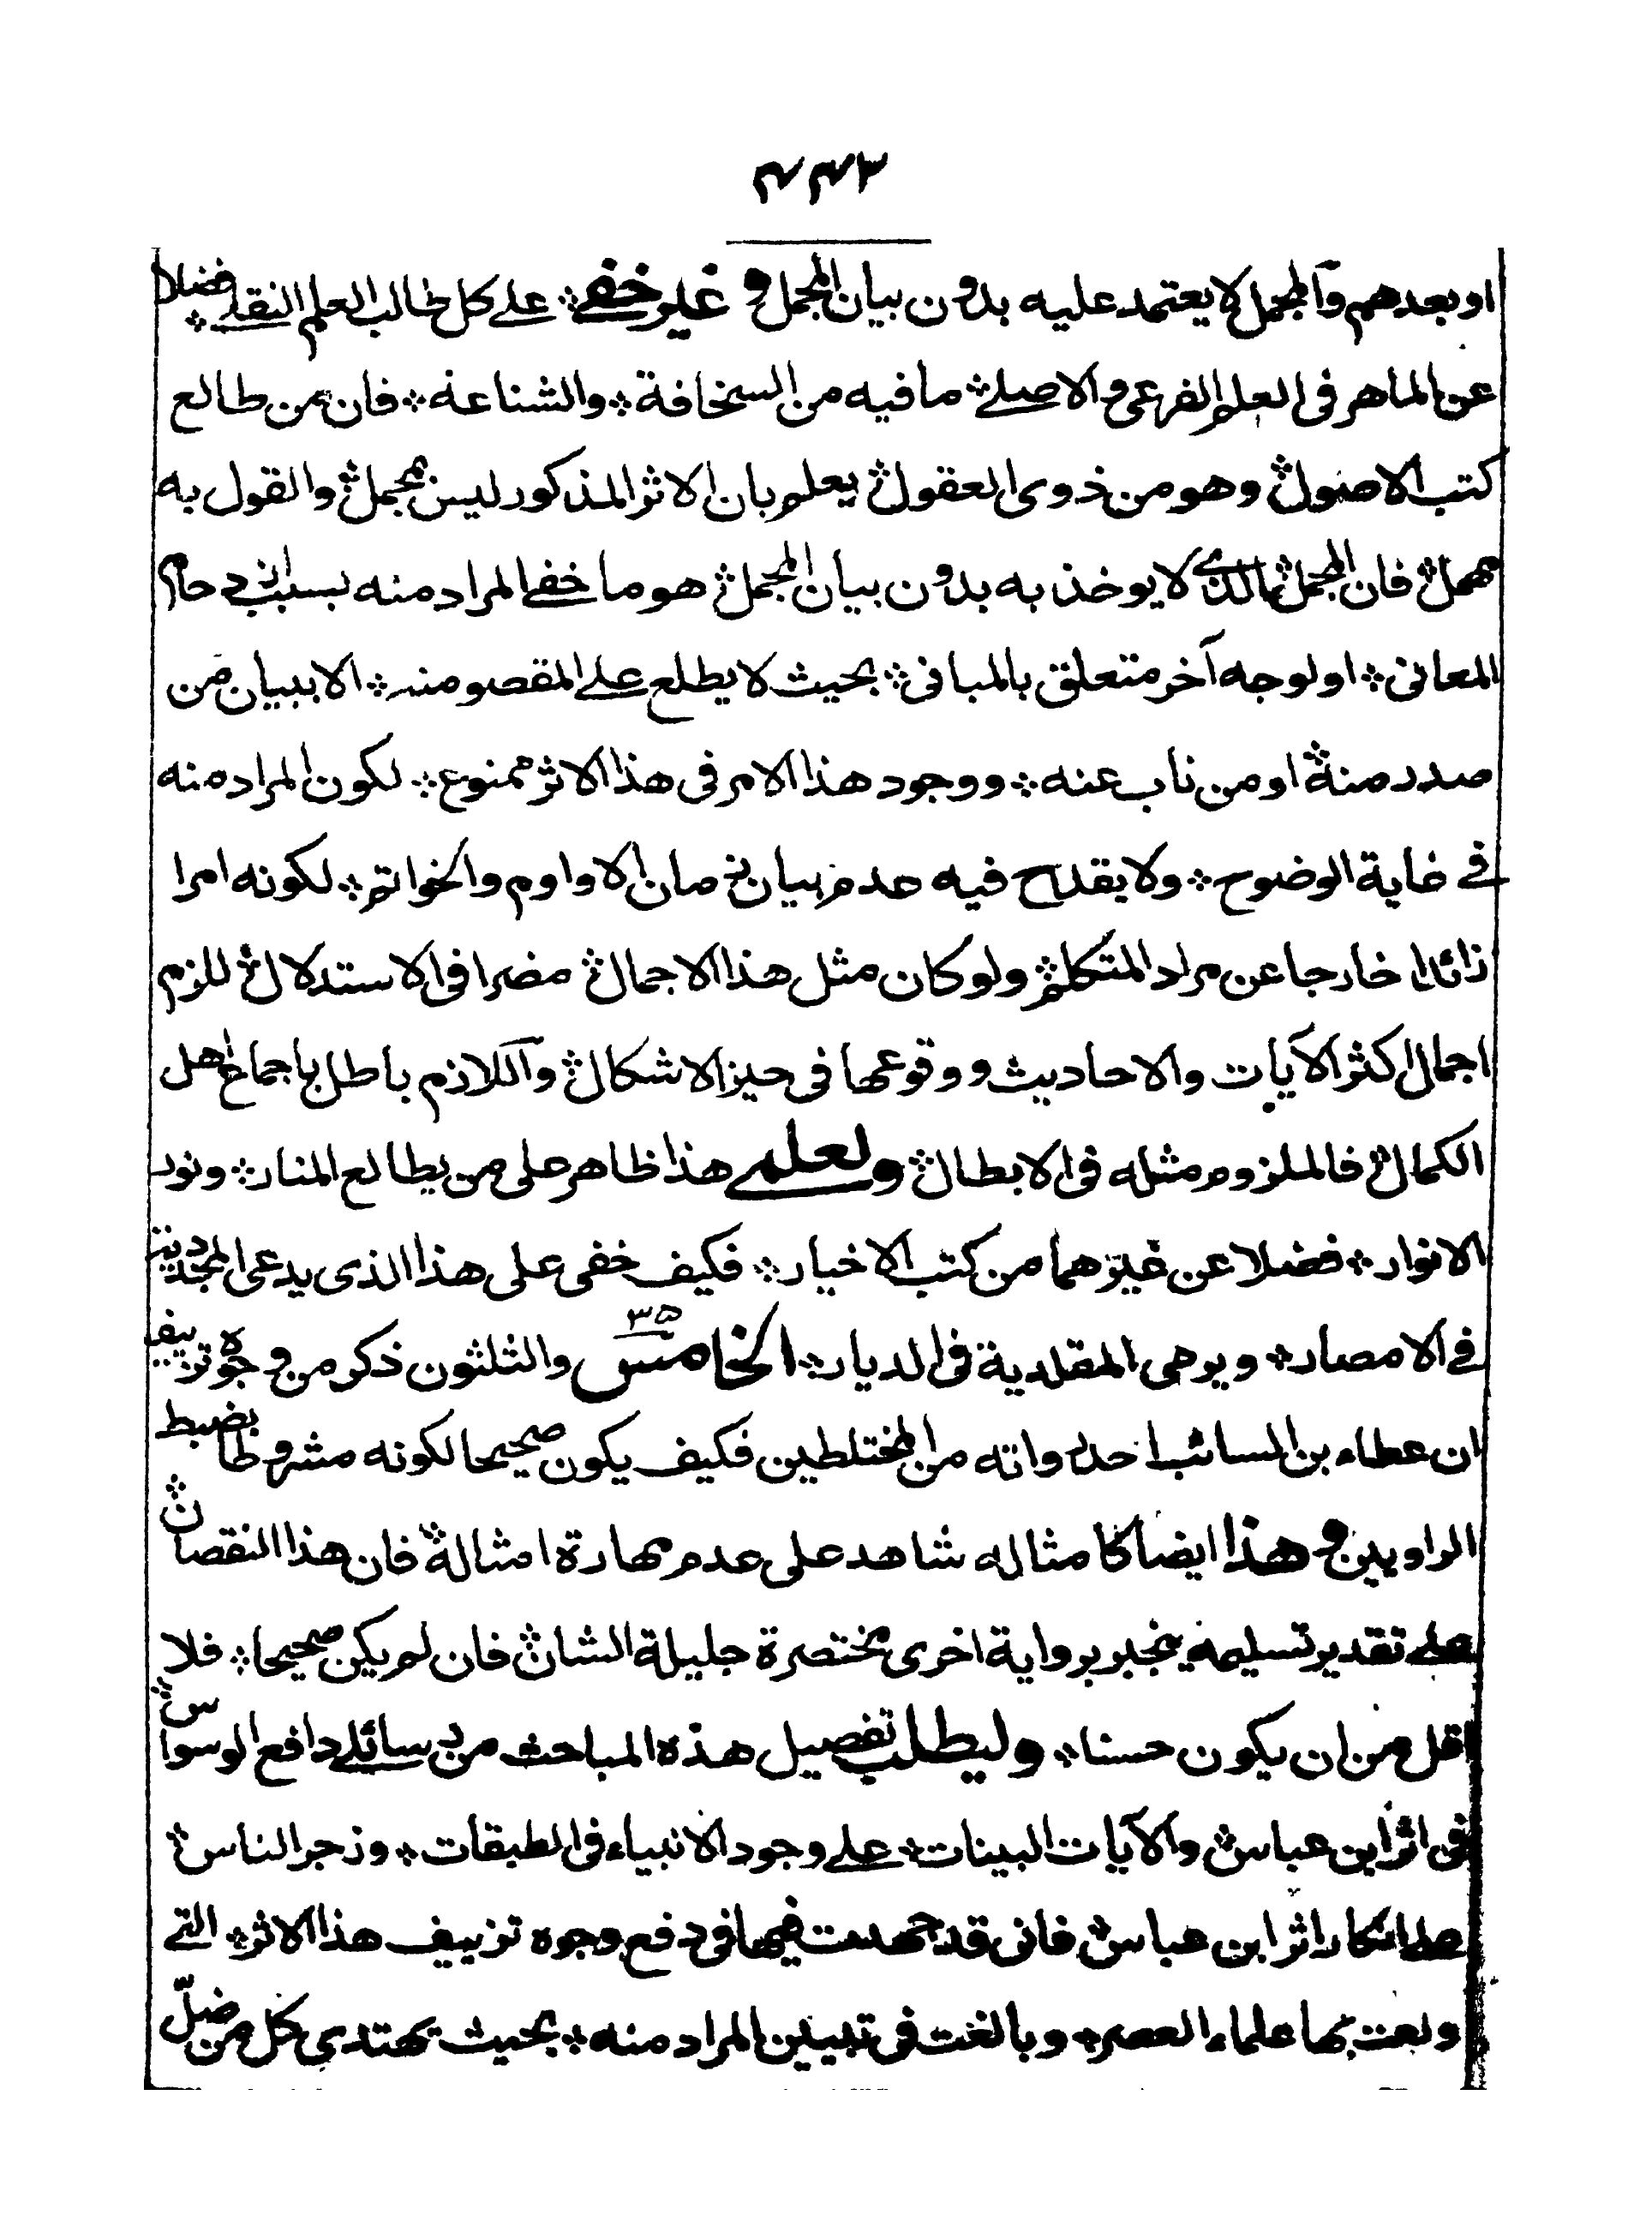 ۴۴۳
او بعدهم والمجمل لا يعتمد عليه بدون بيان المجمل و غير خفے ؞ علے كل طالب العلم النقلے ؞ فضلا
عن الماهر فى العلم الفرعى والاصلے ؞ ما فيه من السخافة ؞ والشناعة ؞ فان من طالع
كتب الاصول ؞ وهو من ذوى العقول ؞ يعلم بان الاثر المذكور ليس بمجمل ؞ والقول به
مهمل ؞ فان المجمل ؞ الذے لا يوخذ به بدون بيان المجمل ؞ هو ما خفے المراد منه بسبب ازدحام
المعانى ؞ او لوجه آخر متعلق بالمبانى ؞ بحيث لا يطلع علے المقصو منه ؞ الا ببيان من
صدر منه ؞ او من ناب عنه ؞ ووجود هذا الامر فى هذا الاثر ممنوع ؞ لكون المراد منه
فے غاية الوضوح ؞ ولا يقدح فيه عدم بيان زمان الاوادم والخواتم ؞ لكونه امرا
زائدا خارجا عن مراد المتكلم ؞ ولو كان مثل هذا الاجمال ؞ مضرا فى الاستدلال ؞ للزم
اجمال اكثر الآيات والاحاديث ووقوعها فى حيز الاشكال ؞ واللازم باطل باجماع اهل
الكمال ؞ فالملزوم مثله فى الابطال ؞ ولعلمے هذا ظاهر على من يطالع المنار ؞ ونور
الانوار ؞ فضلا عن غيرهما من كتب الاخيار ؞ فكيف خفى على هذا الذى يدعى المجددية
فے الامصار ؞ ويرمى المقلدية فى الديار ؞ الخامس ۳۵ والثلثون ذكر من وجوه تزييف
ان عطاء بن السائب احد رواته من المختلطين فكيف يكون صحيحا لكونه مشروطا بضبط
الراويين و هذا ايضا كامثاله شاهد على عدم مهارة امثاله ؞ فان هذا النقصان ؞
علے تقدير تسليمه ينجبر برواية اخرى مختصرة جليلة الشان ؞ فان لم يكن صحيحا ؞ فلا
اقل من ان يكون حسنا ؞ وليطلب تفصيل هذه المباحث من رسائلے دافع الوسواس ؞
فى اثر ابن عباس ؞ والآيات البينات ؞ علے وجود الانبياء فى الطبقات ؞ وزجر الناس ؞
علے انكار اثر ابن عباس ؞ فانى قد جهدت فيها فى دفع وجوه تزييف هذا الاثر ؞ التے
ولعت بها علماء العصر ؞ وبالغت فى تبيين المراد منه ؞ بحيث يهتدى كل من ضلّ